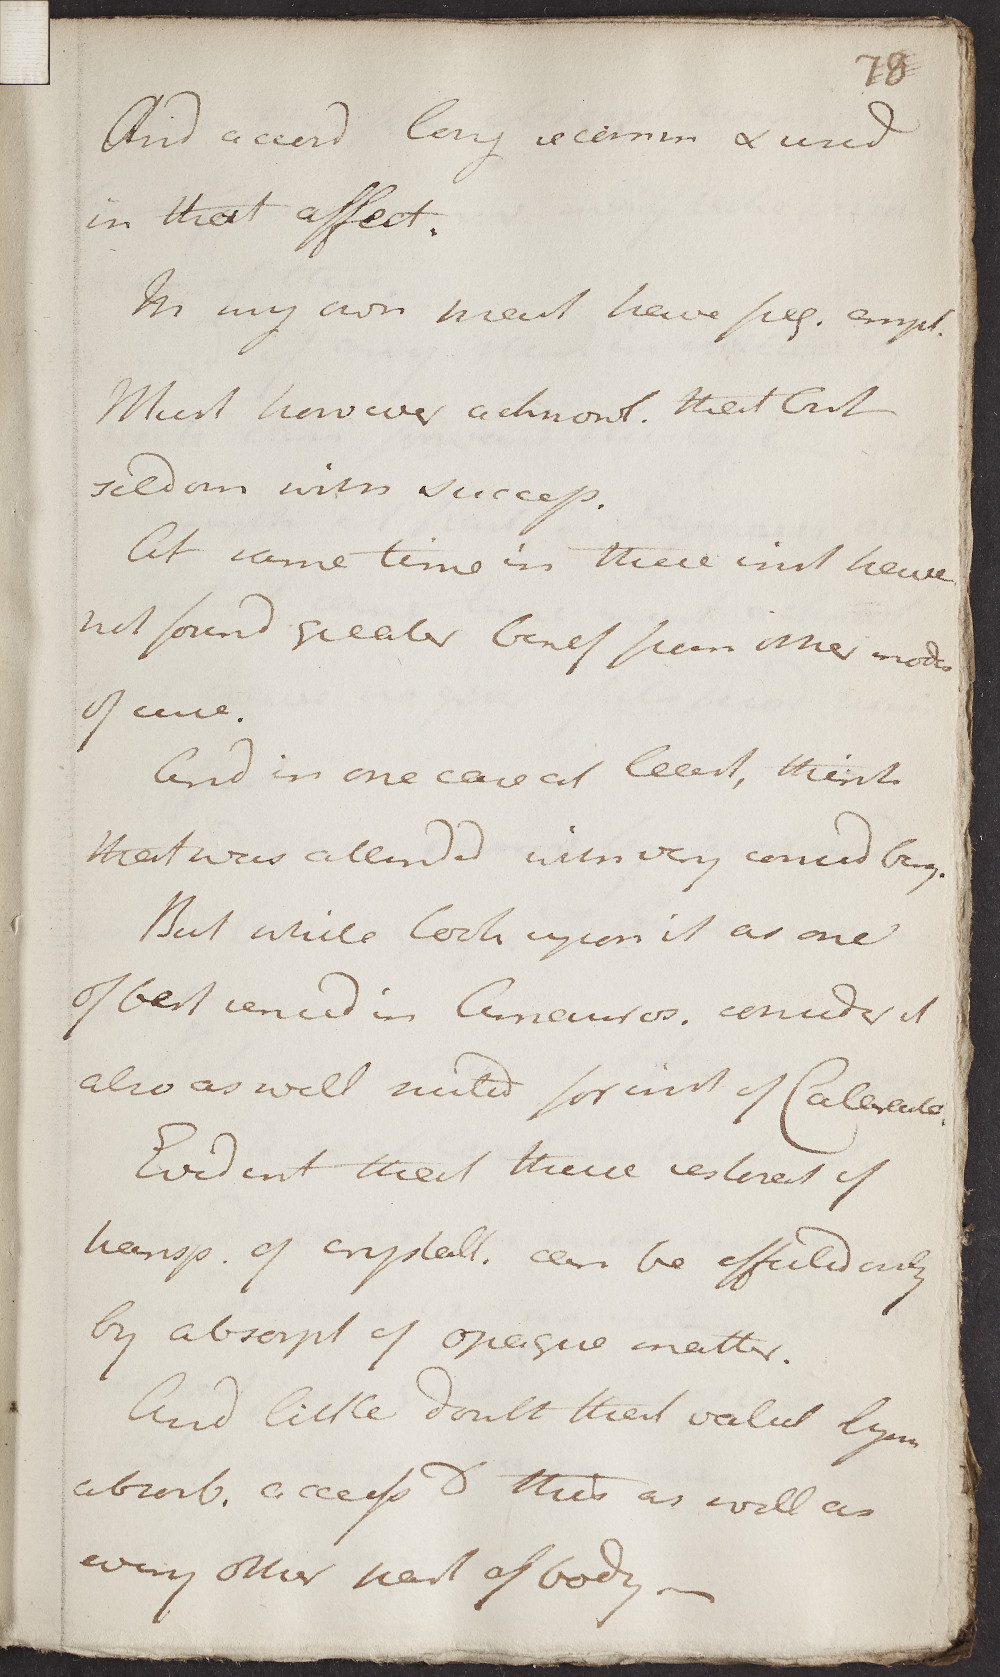 78
And accord long recomm & used
in that affect.
In my own pract have freq. empl.
Must however acknowl. that but
seldom with success.
At same time in these inst have
not found greater benef from other modes
of cure.
And in one case at least, think
that was attended with very consid ben.
But while look upon it as one
of best remed in Amauros. consider it
also as well suited for inst of Cataracts.
Evident that there restorat of
transp. of crystall. can be effected only
by absorpt of opaque matter.
And little doubt that valvul lym
absorb. access to this as well as
every other part of body —